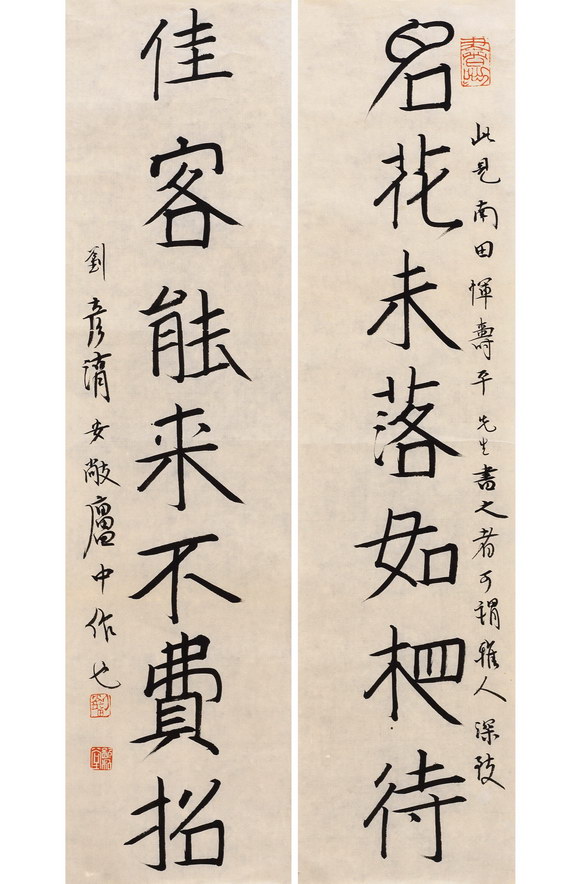 名花未落如相待
此見南田惲壽平先生書之者可謂雅人深致
佳客能来不費招
劉彦敞廬中作也